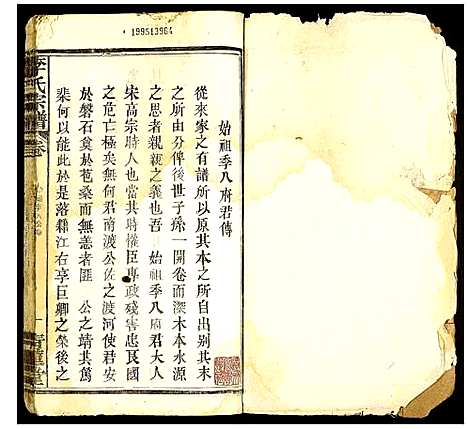 199513964
始祖季八府君傳
從來家之有譜所以原其本之所自出别其末
之所由分俾後世子孫一開卷而深木本水源
之思者親親之義也吾 始祖季八府君大人
宋高宗時人也當其時權臣專政殘害忠良國
之危亡極矣無何君南渡公佐之渡河使君安
於磐石奠於苞桑而無恙者匪 公之靖其萬
柒何以能此於是落籍江右享巨卿之榮後之
氏宗譜
卷
一
堂